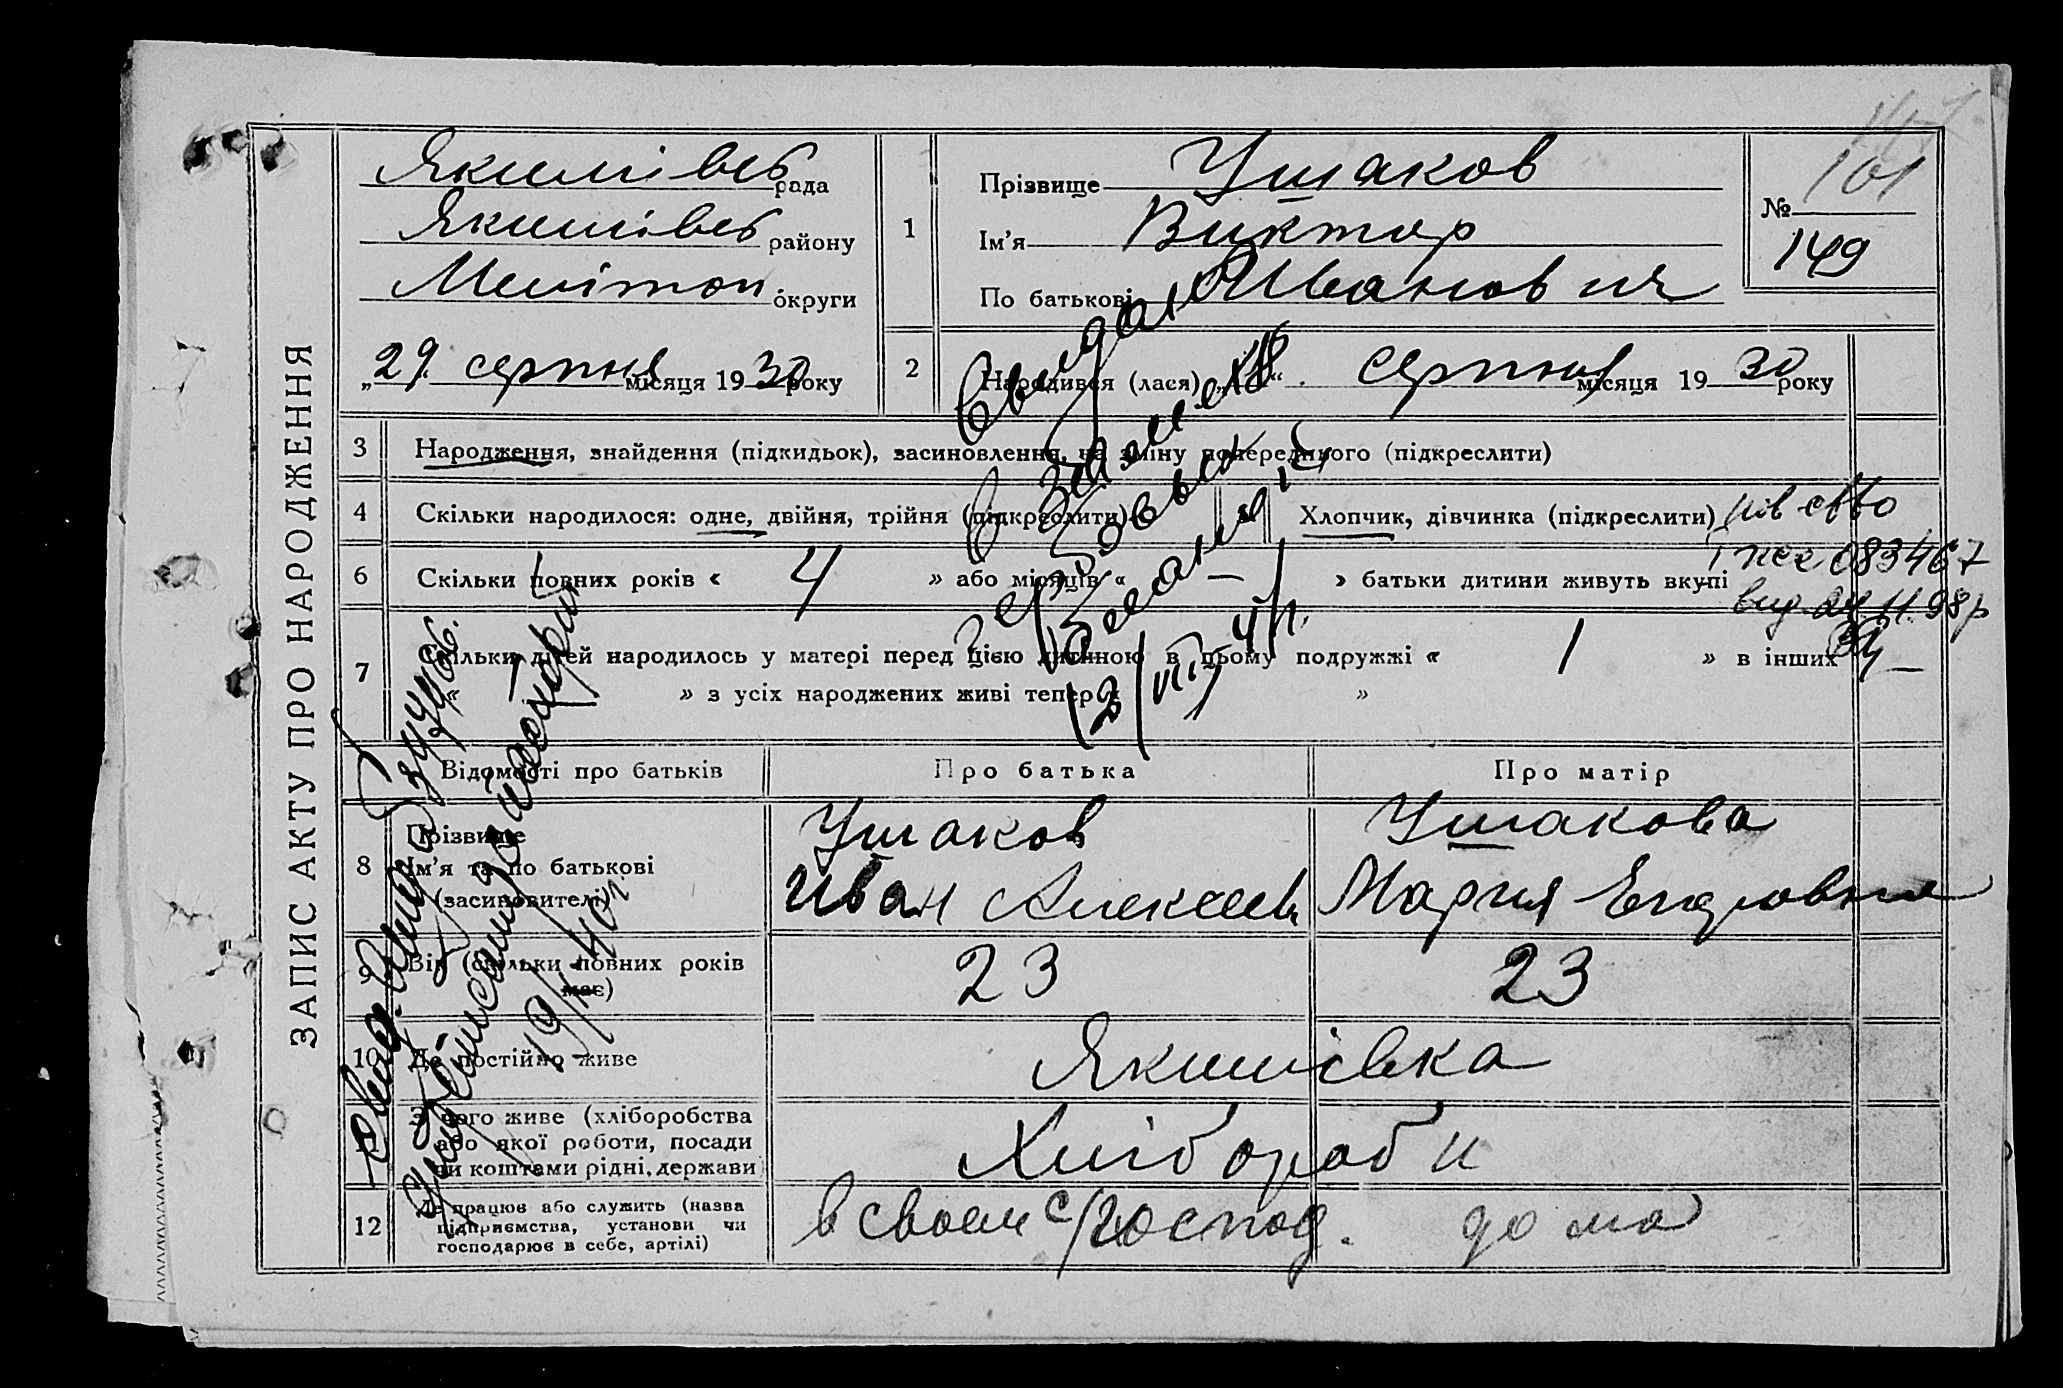 ЗАПИС АКТУ ПРО НАРОДЖЕННЯ
Якимівсь рада
Якимівсь району
Меліток. округи
„29. серпня місяця 1930 року
1
Прізвище Ушаков
Ім'я Виктор
По батькові Иванович
№ 101
149
2
Народився (лася) „18“ серпня місяця 1930 року
3 Народження, знайдення (підкидьок), засиновлення, на зміну попереднього (підкреслити)
4 Скільки народилося: одне, двійня, трійня (підкреслити)
Хлопчик, дівчинка (підкреслити)
св-во
083467
вид. 24.11.98р
6 Скільки повних років « 4 » або місяців « — » батьки дитини живуть вкупі
7 Скільки дітей народилось у матері перед цією дитиною в цьому подружжі « 1 » в інших —
« 1 » з усіх народжених живі тепер « »
Відомості про батьків
Про батька
Про матір
8 Прізвище
Ім'я та по батькові
(засиновителі)
Ушаков
Иван Алексеев
Ушакова
Мария
9 Вік (скільки повних років має)
23
23
10 Де постійно живе
Якимівка
З чого живе (хліборобства
або якої роботи, посади
чи коштами рідні, держави
Хлібороби
12 Де працює або служить (назва
підприємства, установи чи
господарює в себе, артілі)
в своем с/господ.
дома
19/ 40г